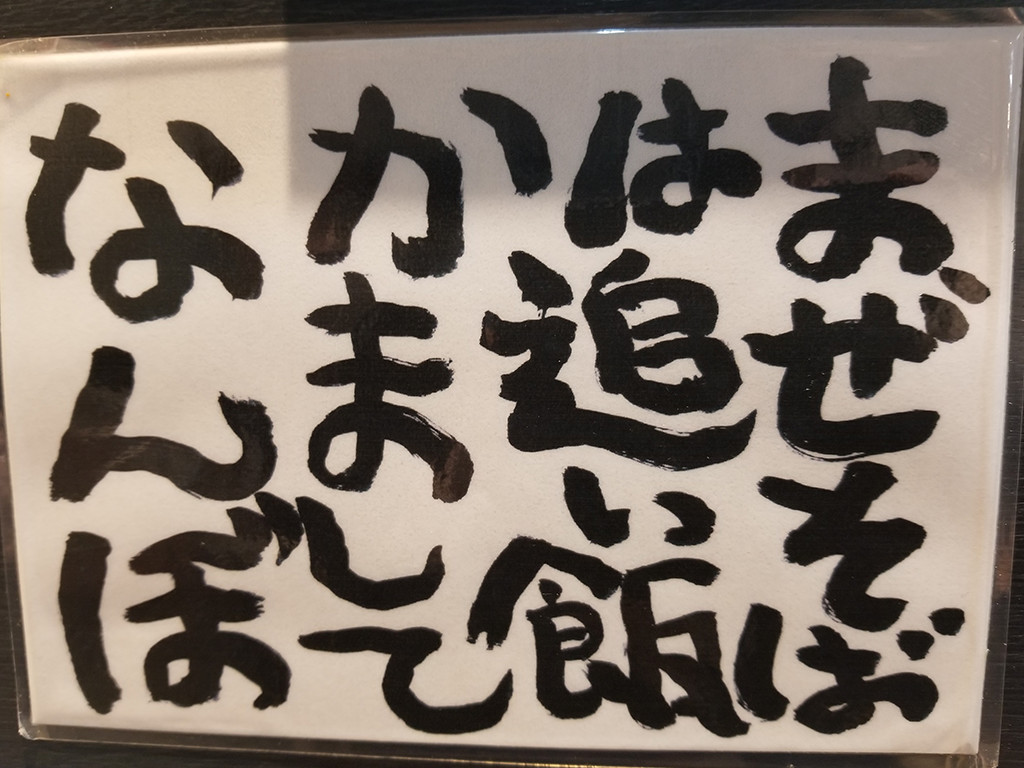 まぜそば
は追い飯
かまして
なんぼ